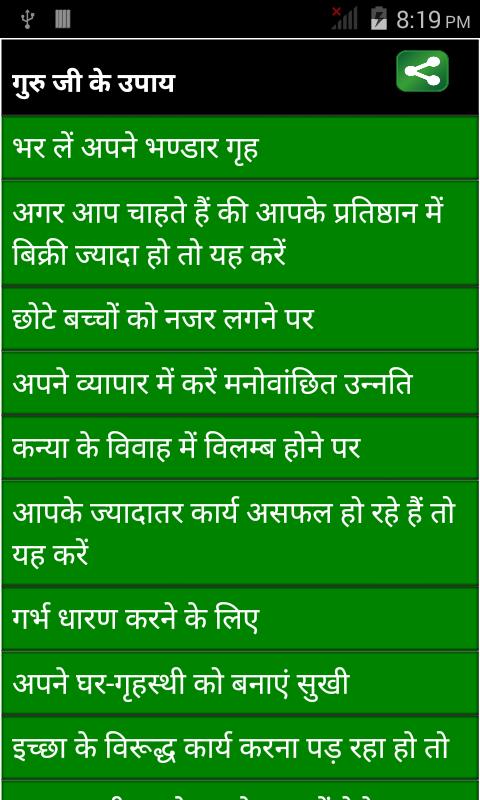 8:19 PM
गुरु जी के उपाय
भर लें अपने भण्डार गृह
अगर आप चाहते हैं की आपके प्रतिष्ठान में
बिक्री ज्यादा हो तो यह करें
छोटे बच्चों को नजर लगने पर
अपने व्यापार में करें मनोवांछित उन्नति
कन्या के विवाह में विलम्ब होने पर
आपके ज्यादातर कार्य असफल हो रहे हैं तो
यह करें
गर्भ धारण करने के लिए
अपने घर-गृहस्थी को बनाएं सुखी
इच्छा के विरूद्ध कार्य करना पड़ रहा हो तो